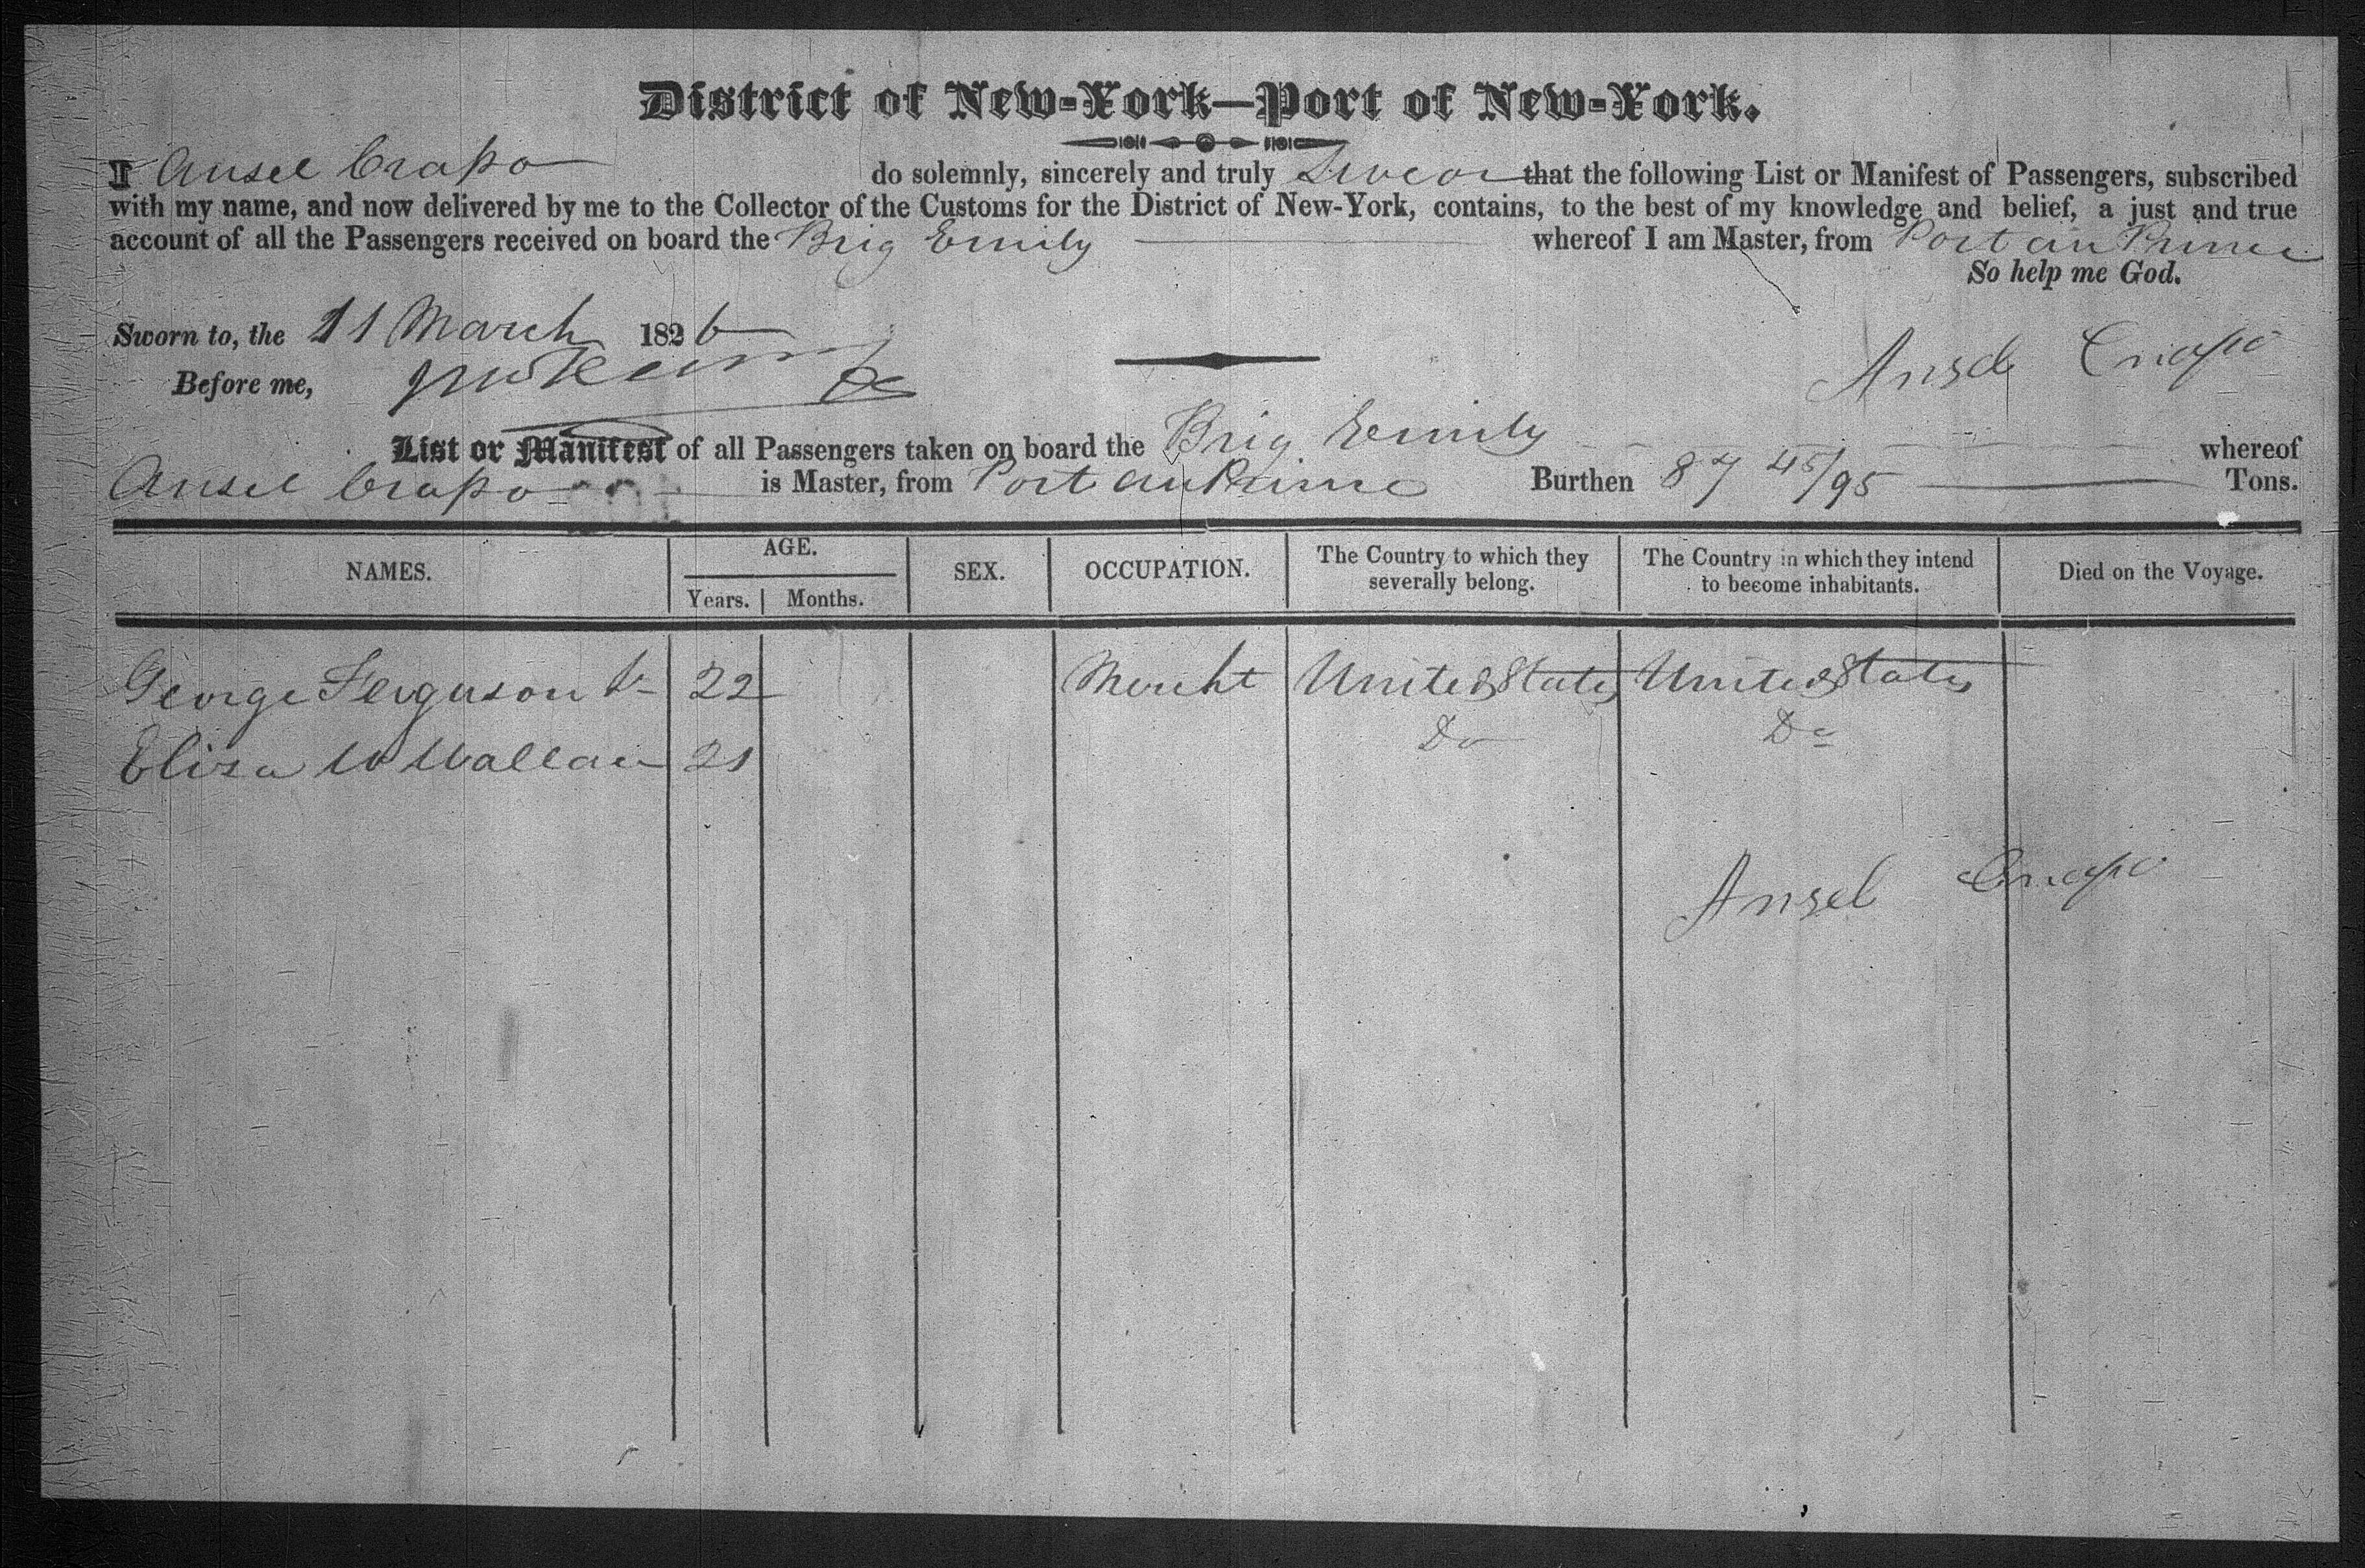 District of New-York—Port of New-York.
I Ansel Crapo do solemnly, sincerely and truly Swear that the following List or Manifest of Passengers, subscribed
with my name, and now delivered by me to the Collector of the Customs for the District of New-York, contains, to the best of my knowledge and belief, a just and true
account of all the Passengers received on board the Brig Emily whereof I am Master, from Port au Prince
So help me God.
Sworn to, the 11 March 1826
Before me,
Ansel Crapo
List or Manifest of all Passengers taken on board the Brig Emily whereof
Ansel Crapo is Master, from Port au Prince Burthen 87 45/95 Tons.
NAMES. AGE. Years. Months. SEX. OCCUPATION. The Country to which they severally belong. The Country in which they intend to become inhabitants. Died on the Voyage.
George Ferguson 22 Mercht United States United States
Eliza Wallace 21 Do Do
Ansel Crapo